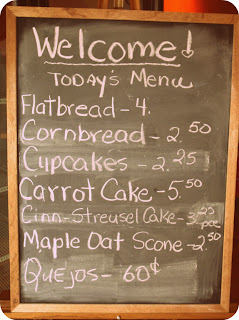 Welcome!
TODAY'S MENU
Flatbread - 4.
Cornbread - 2.50
Cupcakes - 2.25
Carrot Cake - 5.50
Cinn-Streusel Cake - 3.25 pce
Maple Oat Scone - 2.50
Quejos - 60¢